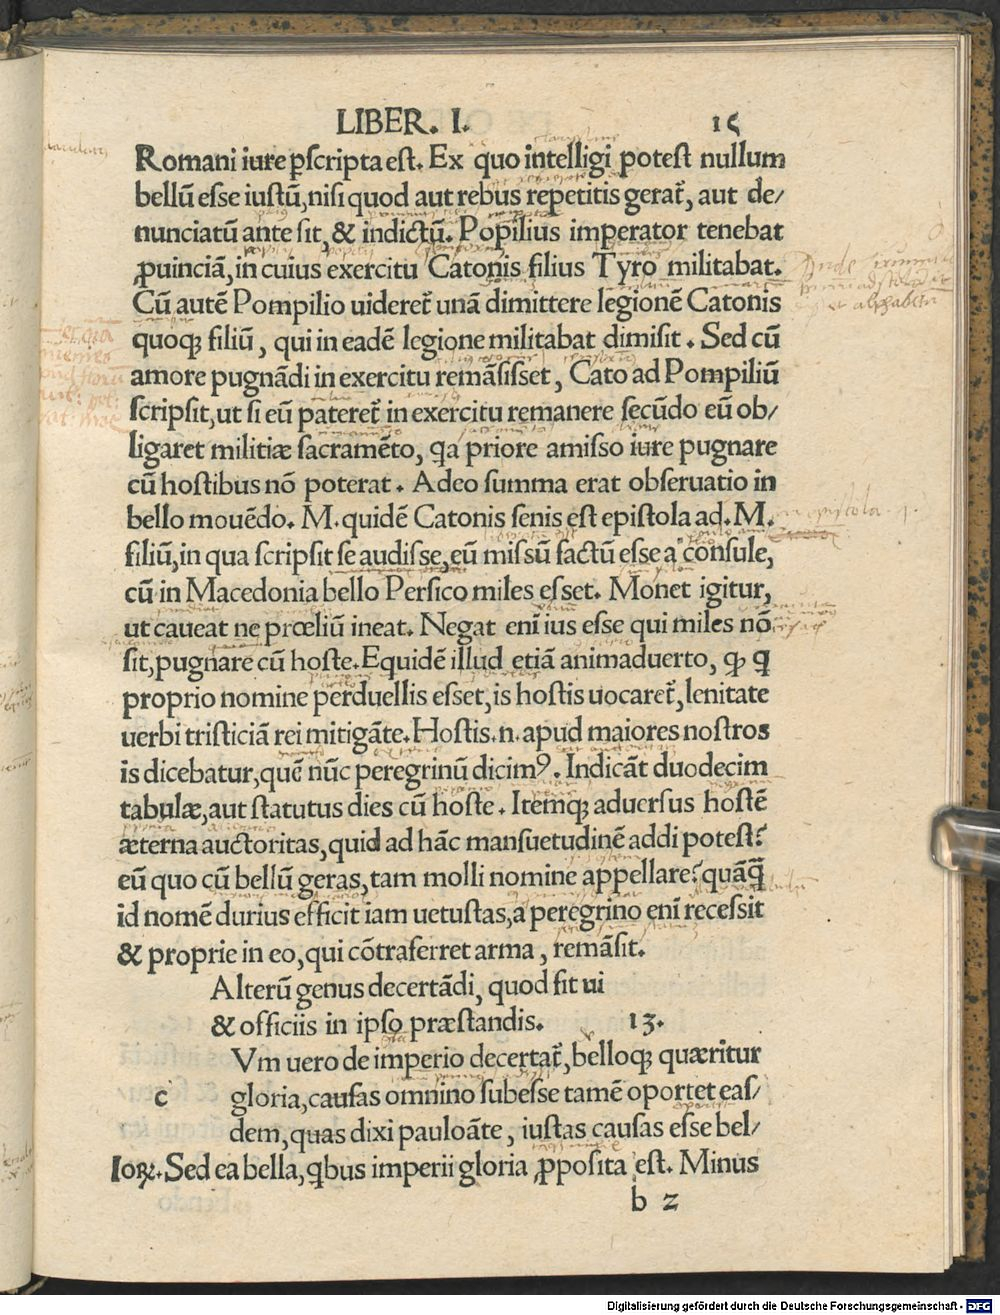 LIBER. I. 15
Romani iure ꝑscripta est. Ex quo intelligi potest nullum
bellū esse iustū, nisi quod aut rebus repetitis gerat̃, aut de/
nunciatū ante sit, & indictū. Popilius imperator tenebat
ꝓuinciā, in cuius exercitu Catonis filius Tyro militabat.
Cū autē Pompilio uideret̃ unā dimittere legionē Catonis
quoq; filiū, qui in eadē legione militabat dimisit. Sed cū
amore pugnādi in exercitu remāsisset, Cato ad Pompiliū
scripsit, ut si eū pateret̃ in exercitu remanere secūdo eū ob/
ligaret militiæ sacramēto, qa priore amisso iure pugnare
cū hostibus nō poterat. Adeo summa erat obseruatio in
bello mouēdo. M. quidē Catonis senis est epistola ad. M.
filiū, in qua scripsit se audisse, eū missū factū esse a consule,
cū in Macedonia bello Persico miles esset. Monet igitur,
ut caueat ne prœliū ineat. Negat eni ius esse qui miles nō
sit, pugnare cū hoste. Equidē illud etiā animaduerto, ꝙ q
proprio nomine perduellis esset, is hostis uocaret̃, lenitate
uerbi tristiciā rei mitigāte. Hostis. n. apud maiores nostros
is dicebatur, quē nūc peregrinū dicimꝰ. Indicāt duodecim
tabulæ, aut statutus dies cū hoste. Itemq; aduersus hostē
æterna auctoritas, quid ad hāc mansuetudinē addi potest?
eū quo cū bellū geras, tam molli nomine appellare? quāq̃
id nomē durius efficit iam uetustas, a peregrino eni recessit
& proprie in eo, qui cōtraferret arma, remāsit.
Alterū genus decertādi, quod fit ui
& officiis in ipso præstandis. 13.
Vm uero de imperio decertat̃, belloq; quæritur
c gloria, causas omnino subesse tamē oportet eas/
dem, quas dixi pauloāte, iustas causas esse bel/
loꝝ. Sed ea bella, qbus imperii gloria ꝓposita est. Minus
b 2
Digitalisierung gefördert durch die Deutsche Forschungsgemeinschaft - DFG